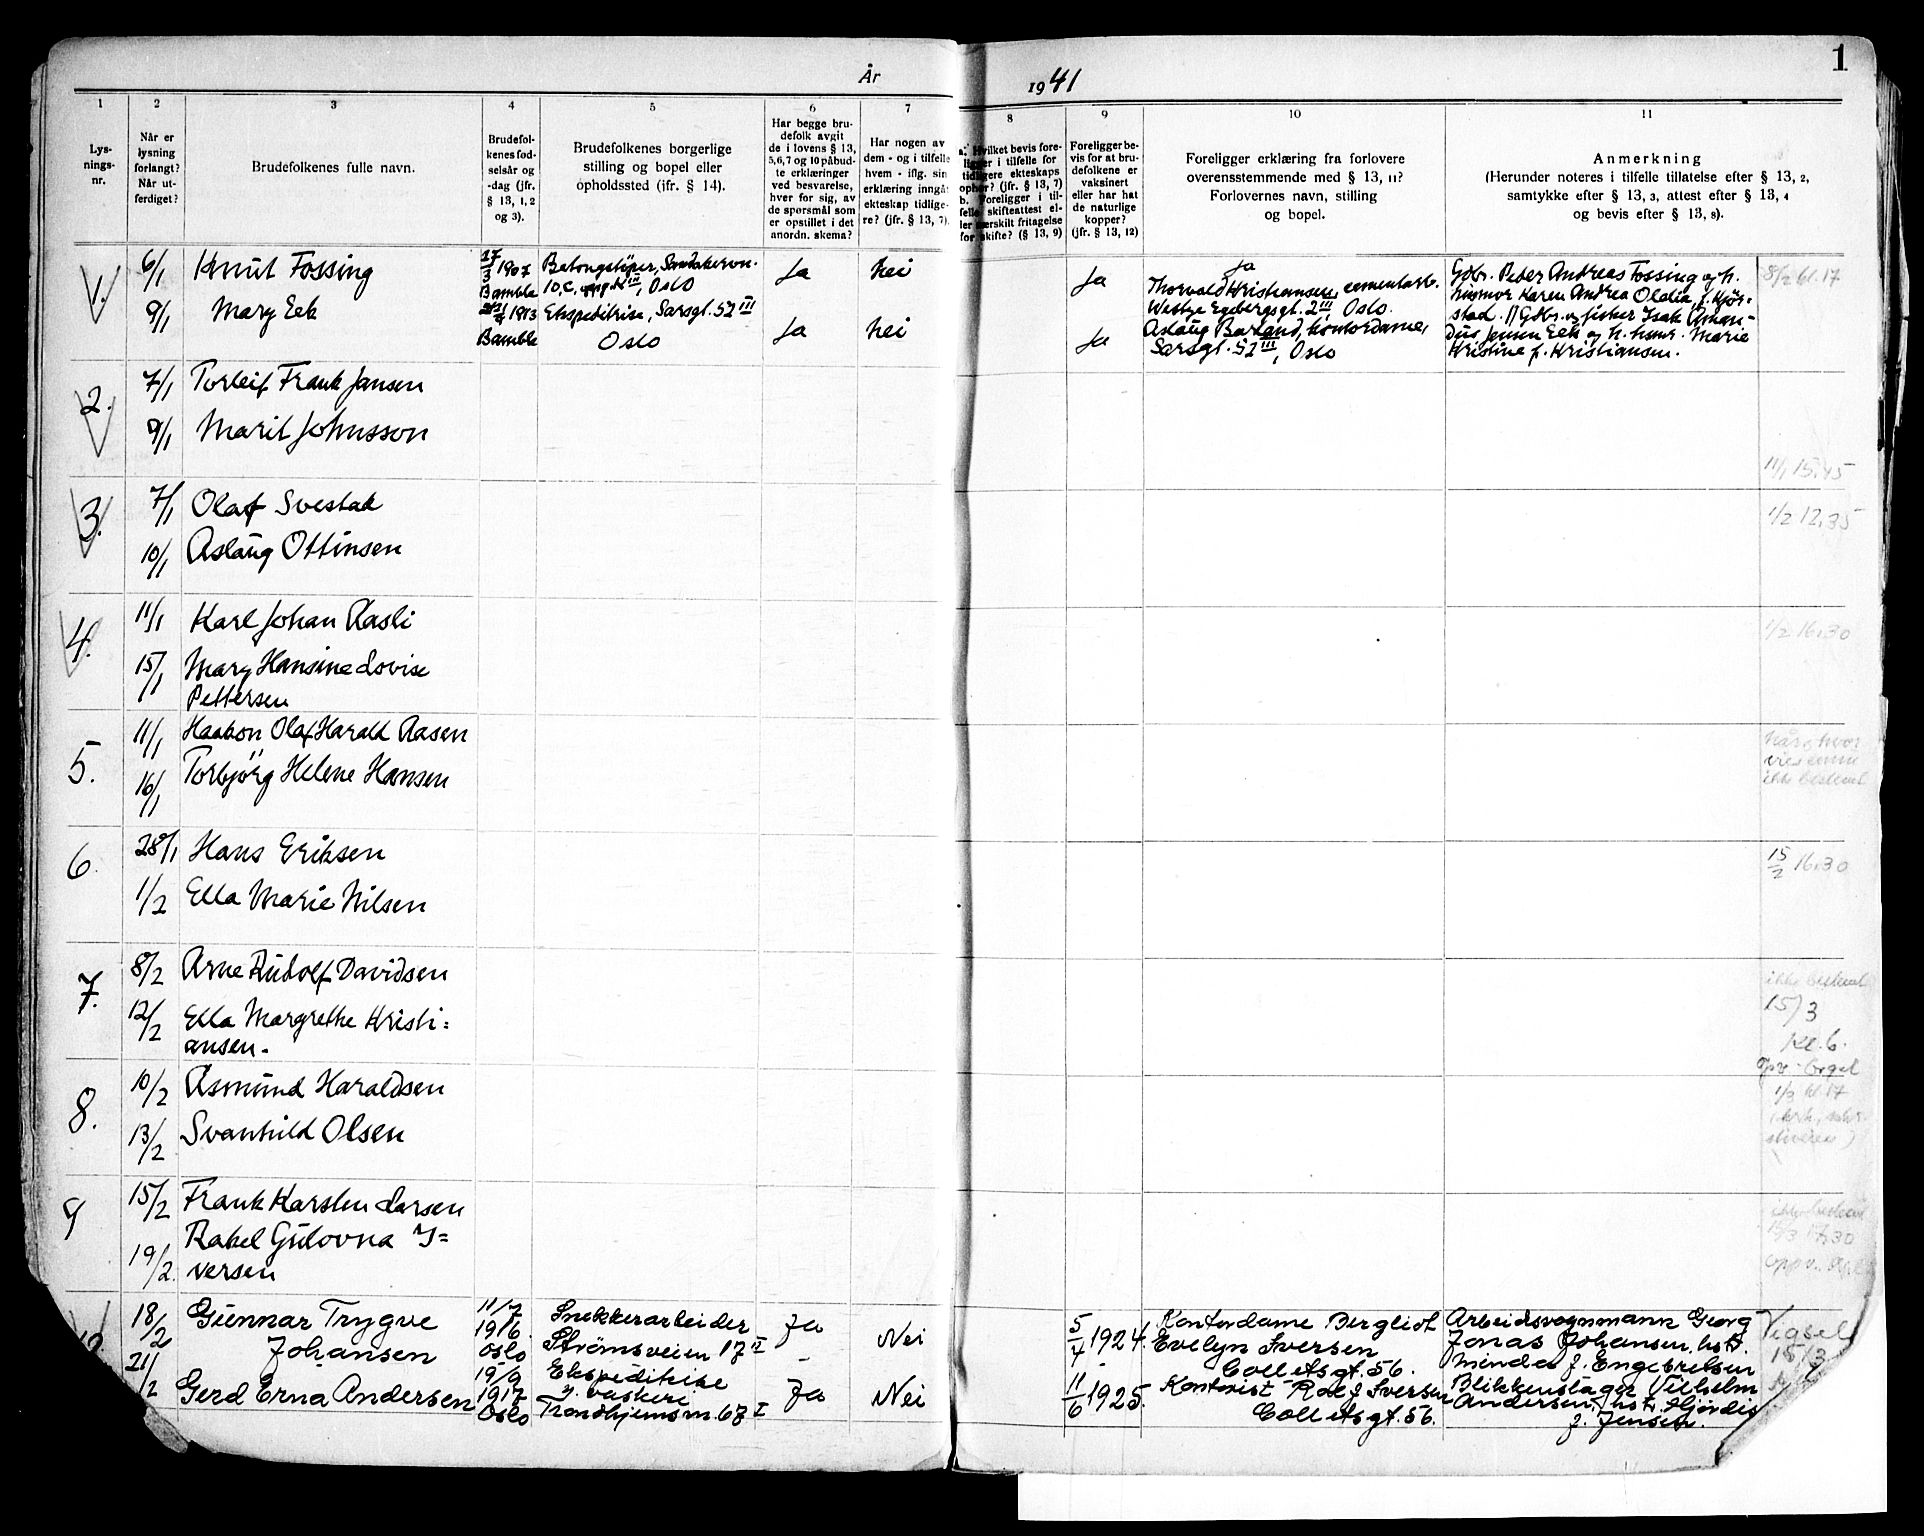 År 1941
1
1 2 3 4 5 6 7 8 9 10 11
Lys-
nings-
nr.
Når er
lysning
forlangt?
Når ut-
ferdiget?
Brudefolkenes fulle navn.
Brudefol-
kenes fød-
selsår og
-dag (jfr.
§ 13, 1, 2
og 3).
Brudefolkenes borgerlige
stilling og bopel eller
opholdssted (ifr. § 14).
Har begge bru-
defolk avgit
de i lovens § 13,
5,6,7 og 10 påbud-
te erklæringer
ved besvarelse,
hver for sig, av
de spørsmål som
er opstillet i det
anordn. skema?
Har nogen av
dem - og i tilfelle
hvem - iflg. sin
erklæring inngåt
ekteskap tidlige-
re? (jfr. § 13, 7).
a. Hvilket bevis fore-
ligger i tilfelle for
tidligere ekteskaps
ophør? (jfr. § 13, 7)
b. Foreligger i til-
felle skifteattest el-
ler særskilt fritagelse
for skifte? (§ 13, 9)
Foreligger be-
vis for at bru-
defolkene er
vaksinert
eller har hat
de naturlige
kopper?
(jfr. § 13, 12)
Foreligger erklæring fra forlovere
overensstemmende med § 13, 11?
Forlovernes navn, stilling
og bopel.
Anmerkning
(Herunder noteres i tilfelle tillatelse efter § 13, 2,
samtykke efter § 13, 3, attest efter § 13, 4
og bevis efter § 13, 8).
1. 6/1 Knut Fossing
17/3 1907
Bamble
Betongstøper,
10, C, III, Oslo
Ja Nei Ja
9/1 Mary Eek
1913
Bamble
Ekspeditrise, Sarsgt. 52 III
Oslo
Ja Nei Ja
Ja
Thorvald Kristiansen, cementarb.
Westye Egebergsgt. 2 III, Oslo.
Aslaug Barland, kontordame,
Sarsgt. 52 III, Oslo
Gdbr. Peder Andreas Fossing og h.
husmor Karen Andrea Olalia, f. Kjør-
stad. // Gdbr. og fisker Isak Aman-
dus Jensen Eek og h. husm. Marie
Kristine f. Kristiansen.
8/2 kl. 17
2. 7/1 Torleif Frank Jansen
9/1 Marit Johnsson
11/1 15.45
3. 7/1 Olaf Svestad
10/1 Aslaug Ottinsen
1/2 12.35
4. 11/1 Karl Johan Rasli
15/1 Mary Hansine Lovise
Pettersen
1/2 16.30
5. 11/1 Haakon Olaf Harald Aasen
16/1 Torbjörg Helene Hansen
når og hvor
ikke bestemt
6. 28/1 Hans Eriksen
1/2 Ella Marie Nilsen
15/2 16.30
7. 8/2 Arne Rudolf Davidsen
12/2 Ella Margrethe Kristi=
ansen.
ikke bestemt
15/3
Kl. 6.
orgel
8. 10/2 Asmund Haraldsen
13/2 Svanhild Olsen
1/3 kl. 17
9 15/2 Frank Karsten Larsen
19/2. Rakel Gudovna I=
versen
ikke bestemt
15/3 17,30
18/2 Gunnar Trygve
Johansen
11/7
1916.
Oslo
Snekkerarbeider
Strømsveien 17 II
Ja Nei
5/4 1924.
Kontordame Bergliot
Evelyn Iversen
Collettsgt. 56.
Arbeidsvognmann Georg
Jonas Johansen, hst.
Minda f. Engebretsen
Vigsel
15/3
21/2 Gerd Erna Andersen
15/9
1917
Oslo
Ekspeditrise
i vaskeri
Trondhjemsvn. 67 I
Ja Nei
11/6 1925.
Kontorist Rolf Iversen
Collettsgt. 56.
Blikkenslager Vilhelm
Andersen, hst. Hjørdis
f. Jensen.